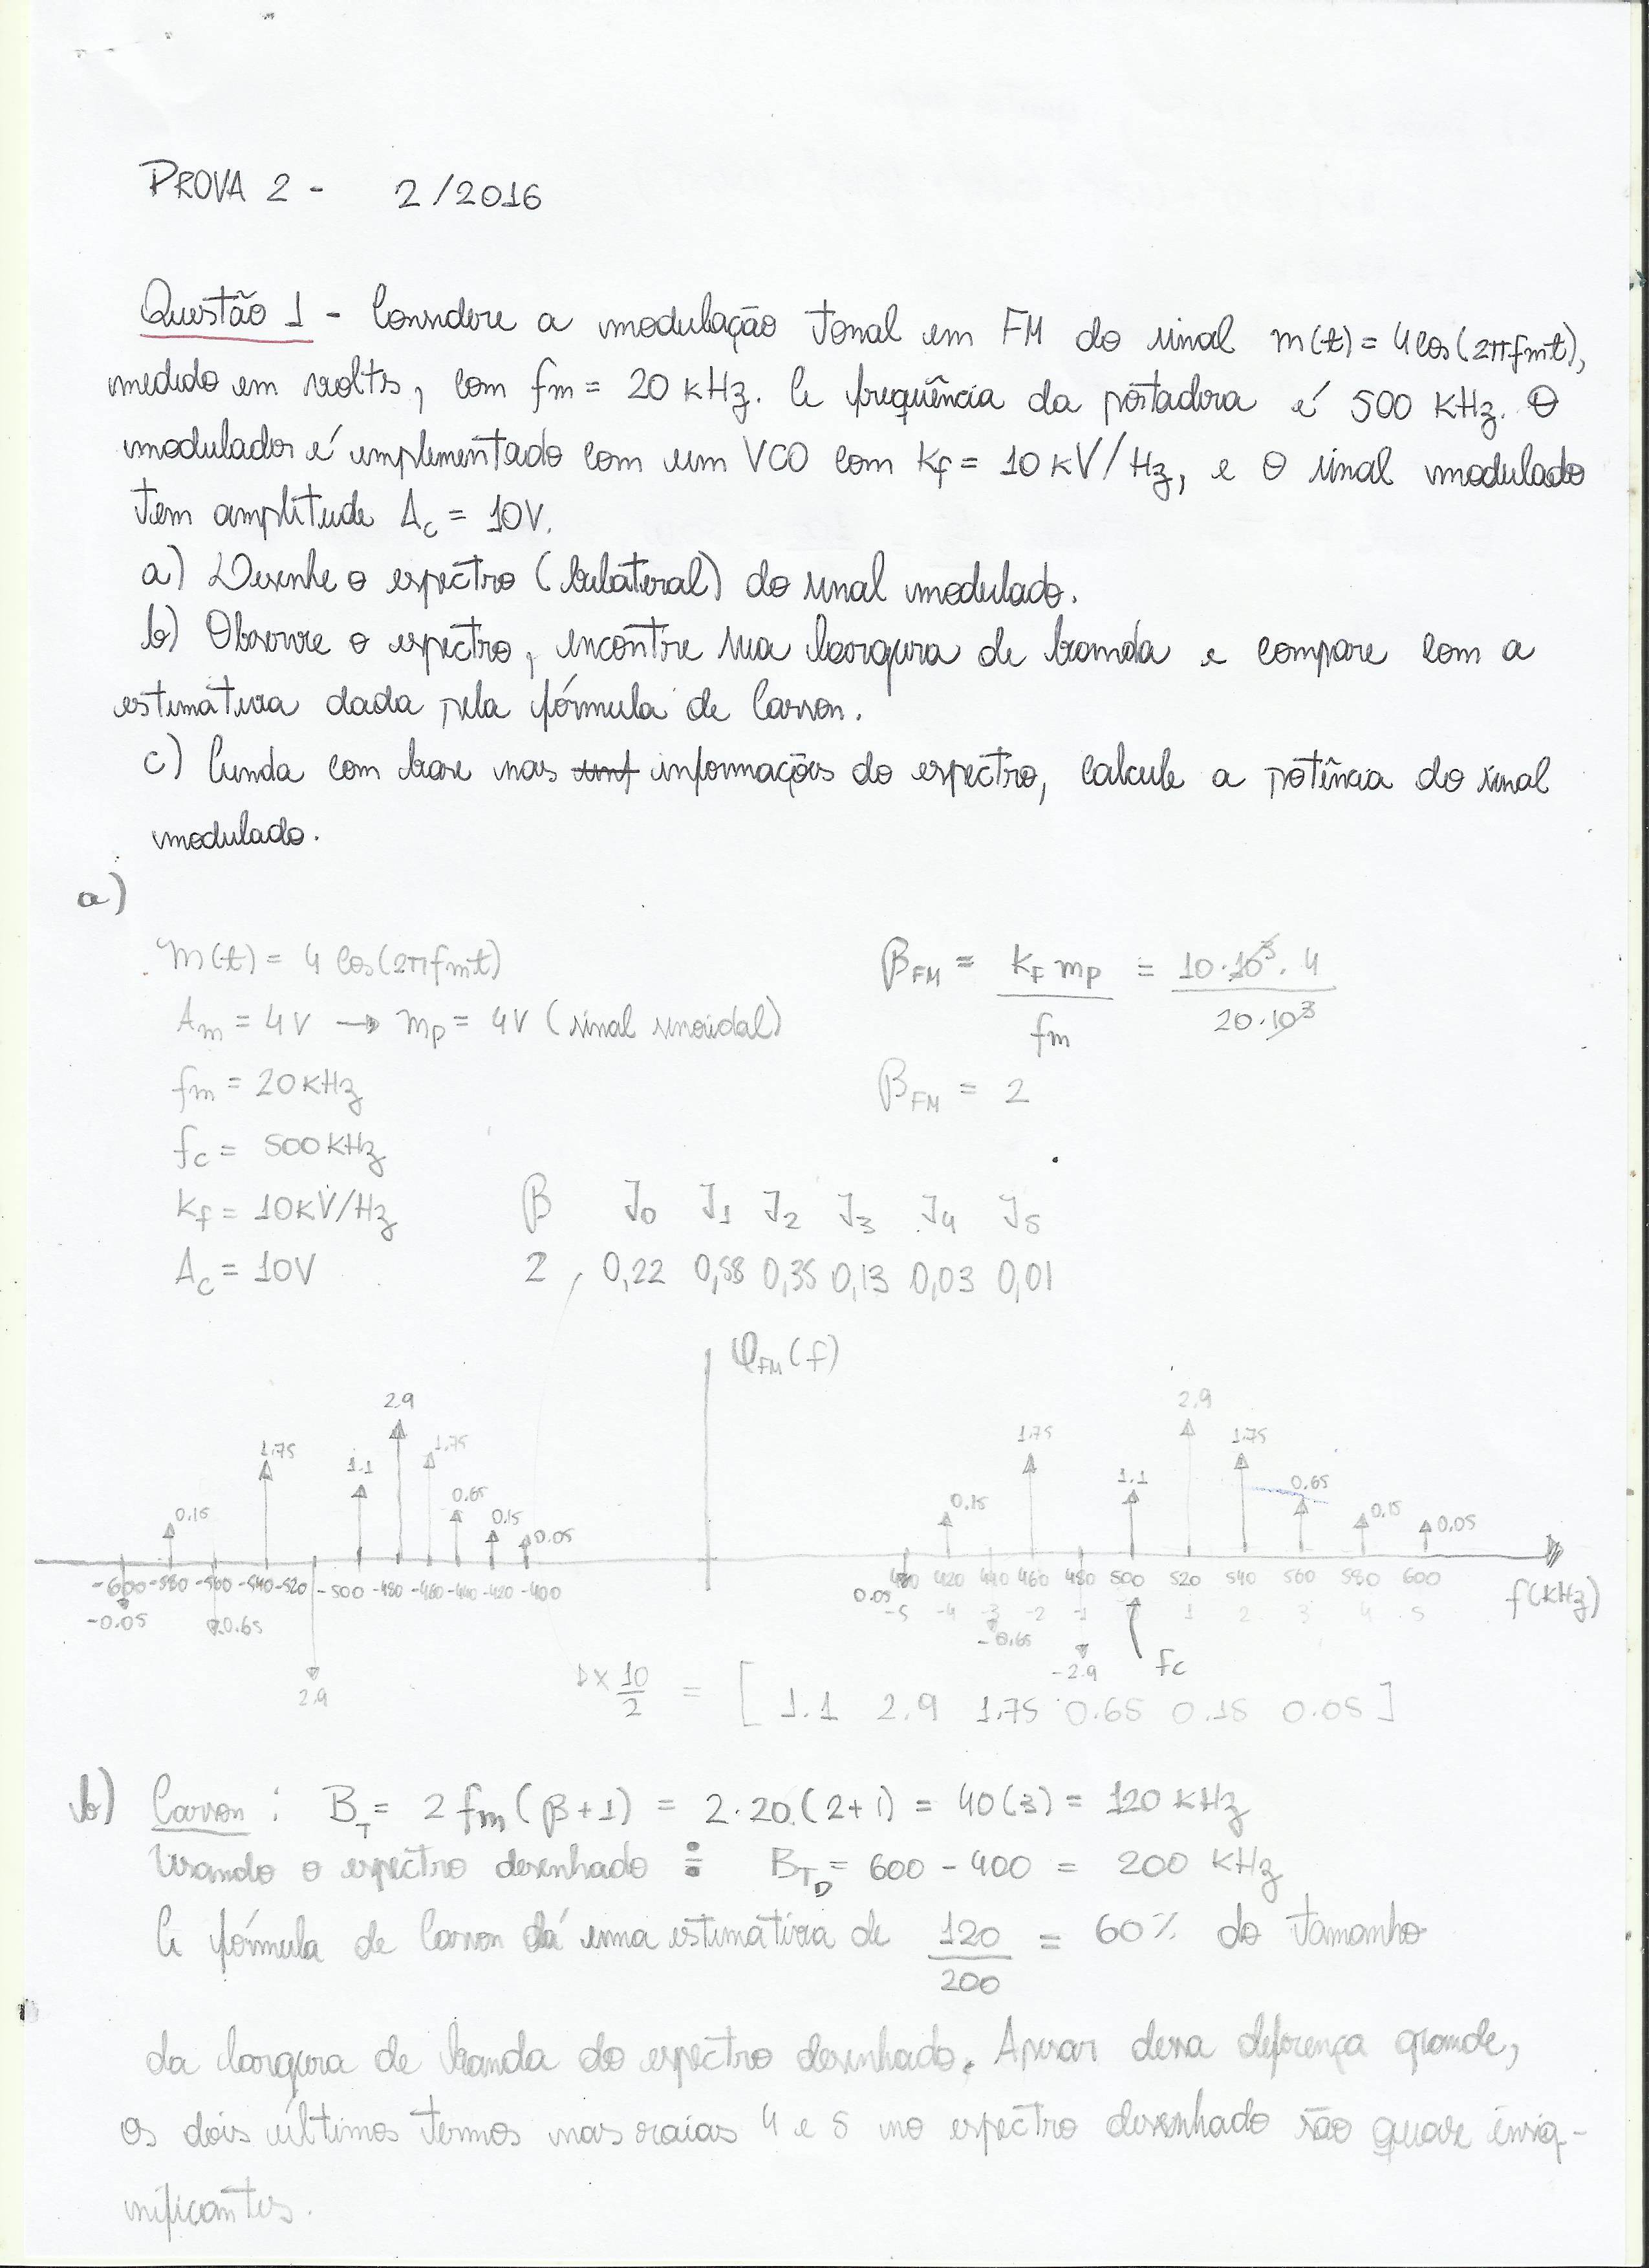 PROVA 2 - 2/2016
Questão 1 - Considere a modulação tonal em FM do sinal m(t) = 4cos(2πfmt),
medido em volts, com fm = 20 KHz. A frequência da portadora é 500 KHz. O
modulador é implementado com um VCO com Kf = 10 KV/Hz, e o sinal modulado
tem amplitude Ac = 10V.
a) Desenhe o espectro (bilateral) do sinal modulado.
b) Observe o espectro, encontre sua largura de banda e compare com a
estimativa dada pela fórmula de Carson.
c) Ainda com base nas informações do espectro, calcule a potência do sinal
modulado.
a)
m(t) = 4 cos(2πfmt)
βFM = Kf mp / fm = 10·10³·4 / 20·10³
Am = 4V → mp = 4V (sinal senoidal)
fm = 20 KHz
βFM = 2
fc = 500 KHz
Kf = 10KV/Hz
β J0 J1 J2 J3 J4 J5
Ac = 10V
2, 0,22 0,58 0,35 0,13 0,03 0,01
φFM(f)
0.15 1.75 1.1 2.9 1.75 0.65 0.15 0.05
0.15 1.75 1.1 2.9 1.75 0.65 0.15 0.05
-600 -580 -560 -540 -520 -500 -480 -460 -440 -420 -400
400 420 440 460 480 500 520 540 560 580 600
f(KHz)
-0.05 0.65 2.9
0.05 -5 -4 -3 -2 -1 1 2 3 4 5
-0.65 -2.9 fc
× 10/2 = [ 1.1 2.9 1.75 0.65 0.15 0.05 ]
b) Carson : BT = 2 fm (β+1) = 2·20.(2+1) = 40(3) = 120 KHz
Usando o espectro desenhado : BTD = 600 - 400 = 200 KHz
A fórmula de Carson dá uma estimativa de 120/200 = 60% do tamanho
da largura de banda do espectro desenhado. Apesar dessa diferença grande,
os dois últimos termos nas raias 4 e 5 no espectro desenhado são quase insig-
nificantes.